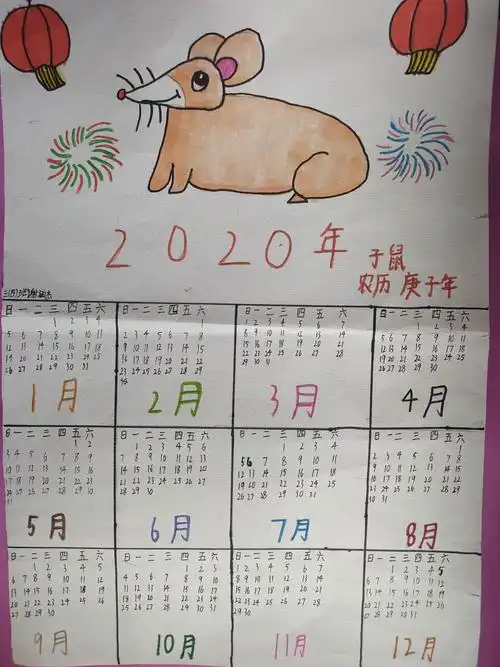 2020年
子鼠
农历 庚子年
日一二三四五六
1 2 3 4
5 6 7 8 9 10 11
12 13 14 15 16 17 18
19 20 21 22 23 24 25
26 27 28 29 30 31
1月
日一二三四五六
1
2 3 4 5 6 7 8
9 10 11 12 13 14 15
16 17 18 19 20 21 22
23 24 25 26 27 28 29
2月
日一二三四五六
1 2 3 4 5 6 7
8 9 10 11 12 13 14
15 16 17 18 19 20 21
22 23 24 25 26 27 28
29 30 31
3月
日一二三四五六
1 2 3 4
5 6 7 8 9 10 11
12 13 14 15 16 17 18
19 20 21 22 23 24 25
26 27 28 29 30
4月
日一二三四五六
1 2
3 4 5 6 7 8 9
10 11 12 13 14 15 16
17 18 19 20 21 22 23
24 25 26 27 28 29 30
31
5月
日一二三四五六
1 2 3 4 5 6
7 8 9 10 11 12 13
14 15 16 17 18 19 20
21 22 23 24 25 26 27
28 29 30
6月
日一二三四五六
1 2 3 4
56 7 8 9 10 11
12 13 14 15 16 17 18
19 20 21 22 23 24 25
26 27 28 29 30 31
7月
日一二三四五六
1
2 3 4 5 6 7 8
9 10 11 12 13 14 15
16 17 18 19 20 21 22
23 24 25 26 27 28 29
30 31
8月
日一二三四五六
1 2 3 4 5
6 7 8 9 10 11 12
13 14 15 16 17 18 19
20 21 22 23 24 25 26
27 28 29 30
9月
日一二三四五六
1 2 3
4 5 6 7 8 9 10
11 12 13 14 15 16 17
18 19 20 21 22 23 24
25 26 27 28 29 30 31
10月
日一二三四五六
1 2 3 4 5 6 7
8 9 10 11 12 13 14
15 16 17 18 19 20 21
22 23 24 25 26 27 28
29 30
11月
日一二三四五六
1 2 3 4 5
6 7 8 9 10 11 12
13 14 15 16 17 18 19
20 21 22 23 24 25 26
27 28 29 30 31
12月